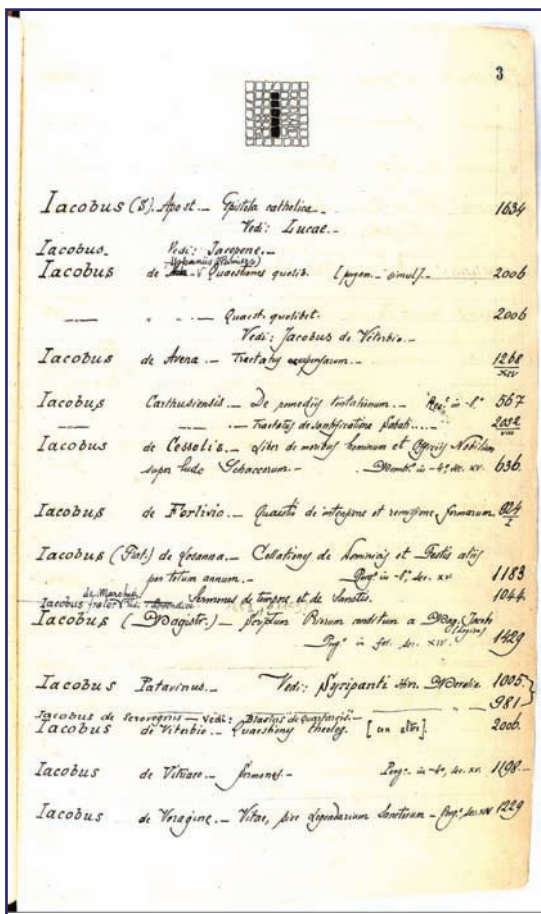 3
I
Iacobus (S). Apost. — Epistola catholica — 1634
Vedi: Lucae. —
Iacobus. Vedi: Jacopone. —
Iacobus de — Quaestiones quolib. 2006
— " " — Quaest. quolibet. 2006
Vedi: Jacobus de Viterbio. —
Iacobus de Avena. — Tractatus 1268
XIV
Iacobus Carthusiensis. — De remediis tentationum. — in - 8° 567
— — . — Tractatus de santificatione Sabati . . . . 2052
VIII
Iacobus de Cessolis. — Liber de moribus hominum et Officiis Nobilium
super ludo Schaccorum. — in - 4°, sec. XV. 636.
Iacobus de Forlivio. — Quaestio de intensione et remissione formarum 924
I
Iacobus de Losanna. — Collationes de Dominicis et Festis aliis
per totum annum. — in - 8°, sec. XV 1183
de Marchia
Iacobus frater Sermones de tempore et de Sanctis. 1044.
Iacobus (Magistr.) — Scriptum conditum a Mag. Jacob
in fol. sec. XIV. — 1429
Iacobus Patavinus. — Vedi: Syripanti 1005
981
Iacobus de — Vedi: Blasius
Iacobus de Viterbio. — Quaestiones theolog. [con altri]. 2006.
Iacobus de Vitriaco. — Sermones. — in - 4°, sec. XV 1198. —
Iacobus de Voragine. — Vitae, sive legendarium Sanctorum — sec. XIV 1229